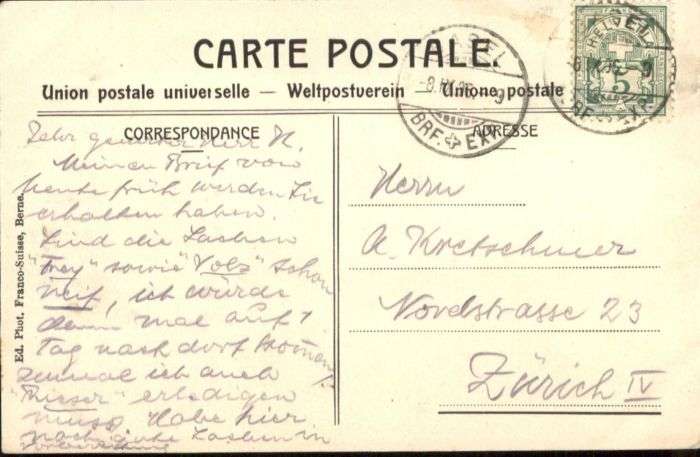 CARTE POSTALE.
Union postale universelle — Weltpostverein — Unione postale
CORRESPONDANCE
ADRESSE
Sehr geehrter Herr K.
Meinen Brief vom
heute früh werden Sie
erhalten haben.
Sind die Sachen
"Frey" sowie "Volz" schon
reif, ich würde
dann mal auf 1
Tag nach dort kommen,
zumal ich auch
"Rieser" erledigen
muss. Habe hier
noch gute Sachen in
Herrn
A. Kretschmer
Nordstrasse 23
Zürich IV
Ed. Phot. Franco-Suisse, Berne.
BASEL
BRF. EXP.
HELVETIA
5
BRF. EXP.